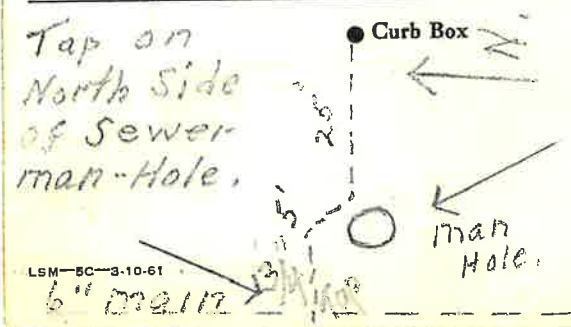 Tap on
North Side
of Sewer
man-Hole.
Curb Box
N
25'
man
Hole.
LSM—5C—3-10-61
6" Main